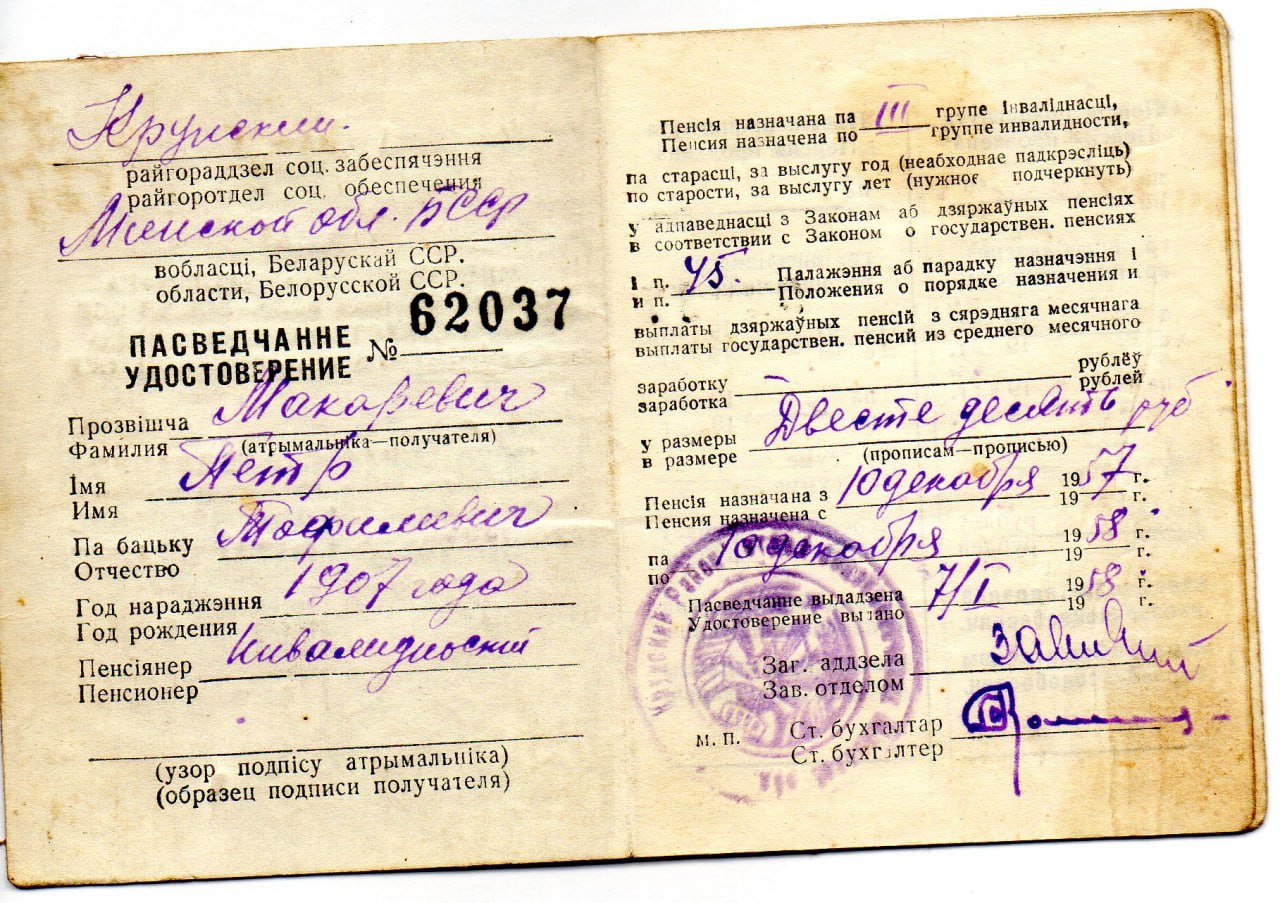 Крупский
райгораддзел соц. забеспячэння
райгоротдел соц. обеспечения
Минской обл. БССР
вобласці, Беларускай ССР.
области, Белорусской ССР.
ПАСВЕДЧАННЕ
УДОСТОВЕРЕНИЕ № 62037
Прозвішча Макаревич
Фамилия (атрымальніка—получателя)
Імя Петр
Имя
Па бацьку
Отчество
Год нараджэння 1907 года
Год рождения
Пенсіянер Инвалидность
Пенсионер
(узор подпісу атрымальніка)
(образец подписи получателя)
Пенсія назначана па III групе інваліднасці,
Пенсия назначена по группе инвалидности,
па старасці, за выслугу год (неабходнае падкрэсліць)
по старости, за выслугу лет (нужное подчеркнуть)
у адпаведнасці з Законам аб дзяржаўных пенсіях
в соответствии с Законом о государствен. пенсиях
і п. 45. Палажэння аб парадку назначэння і
и п. Положения о порядке назначения и
выплаты дзяржаўных пенсій з сярэдняга месячнага
выплаты государствен. пенсий из среднего месячного
заработку рублёў
заработка рублей
у размеры Двести десять руб
в размере (прописам—прописью)
Пенсія назначана з 10 декабря 1957 г.
Пенсия назначена с 19 г.
па 10 декабря 1958 г.
по 19 г.
Пасведчанне выдадзена 7/I 1958 г.
Удостоверение выдано 19 г.
Заг. аддзела
Зав. отделом
м. п. Ст. бухгалтар
Ст. бухгалтер